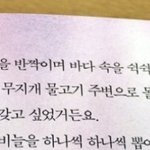 을 반짝이며 바다 속을 쉭쉭
무지개 물고기 주변으로 몰
갖고 싶었거든요.
비늘을 하나씩 하나씩 뽑아